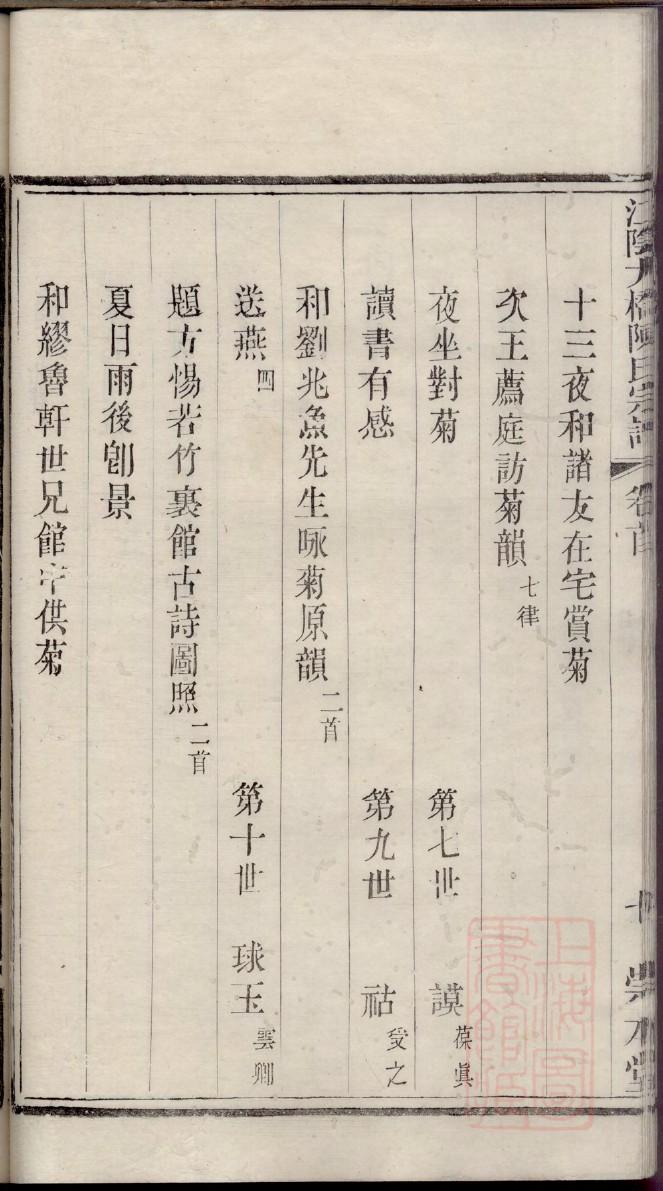 江陰九橋陳氏宗譜 卷首 崇本堂
十三夜和諸友在宅賞菊
次王薦庭訪菊韻 七律
夜坐對菊 第七世 謨 葆眞
讀書有感 第九世 祜 受之
和劉兆漁先生咏菊原韻 二首
送燕 四 第十世 球玉 雲卿
題方惕若竹裏館古詩圖照 二首
夏日雨後卽景
和繆魯軒世兄館中供菊
上海圖書館藏